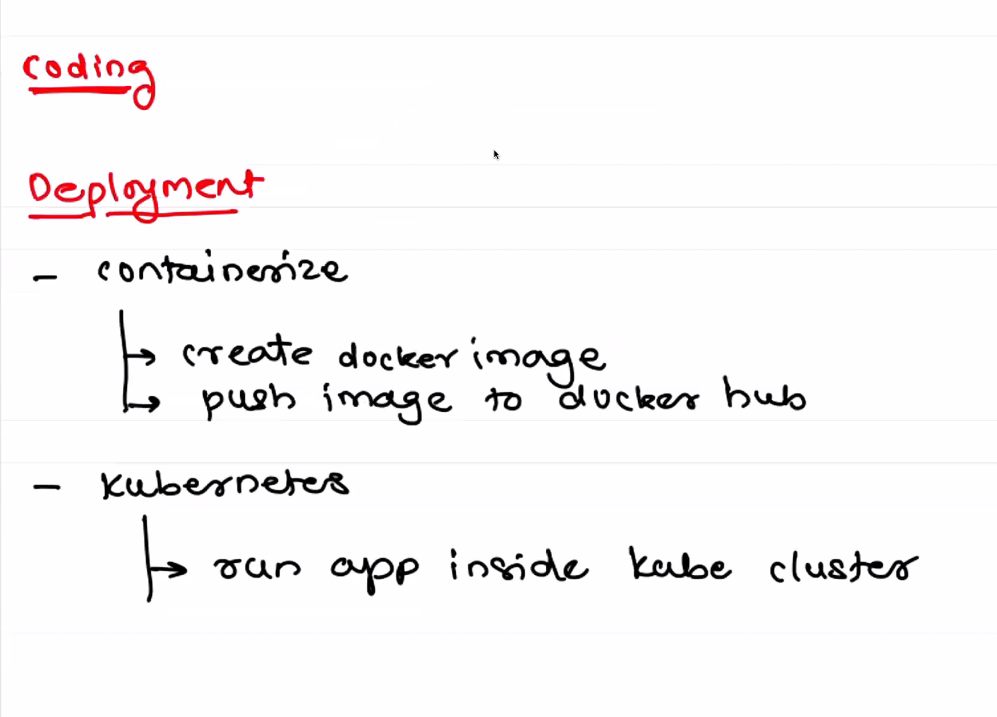 coding
Deployment
- containerize
→ create docker image
→ push image to docker hub
- Kubernetes
→ run app inside kube cluster